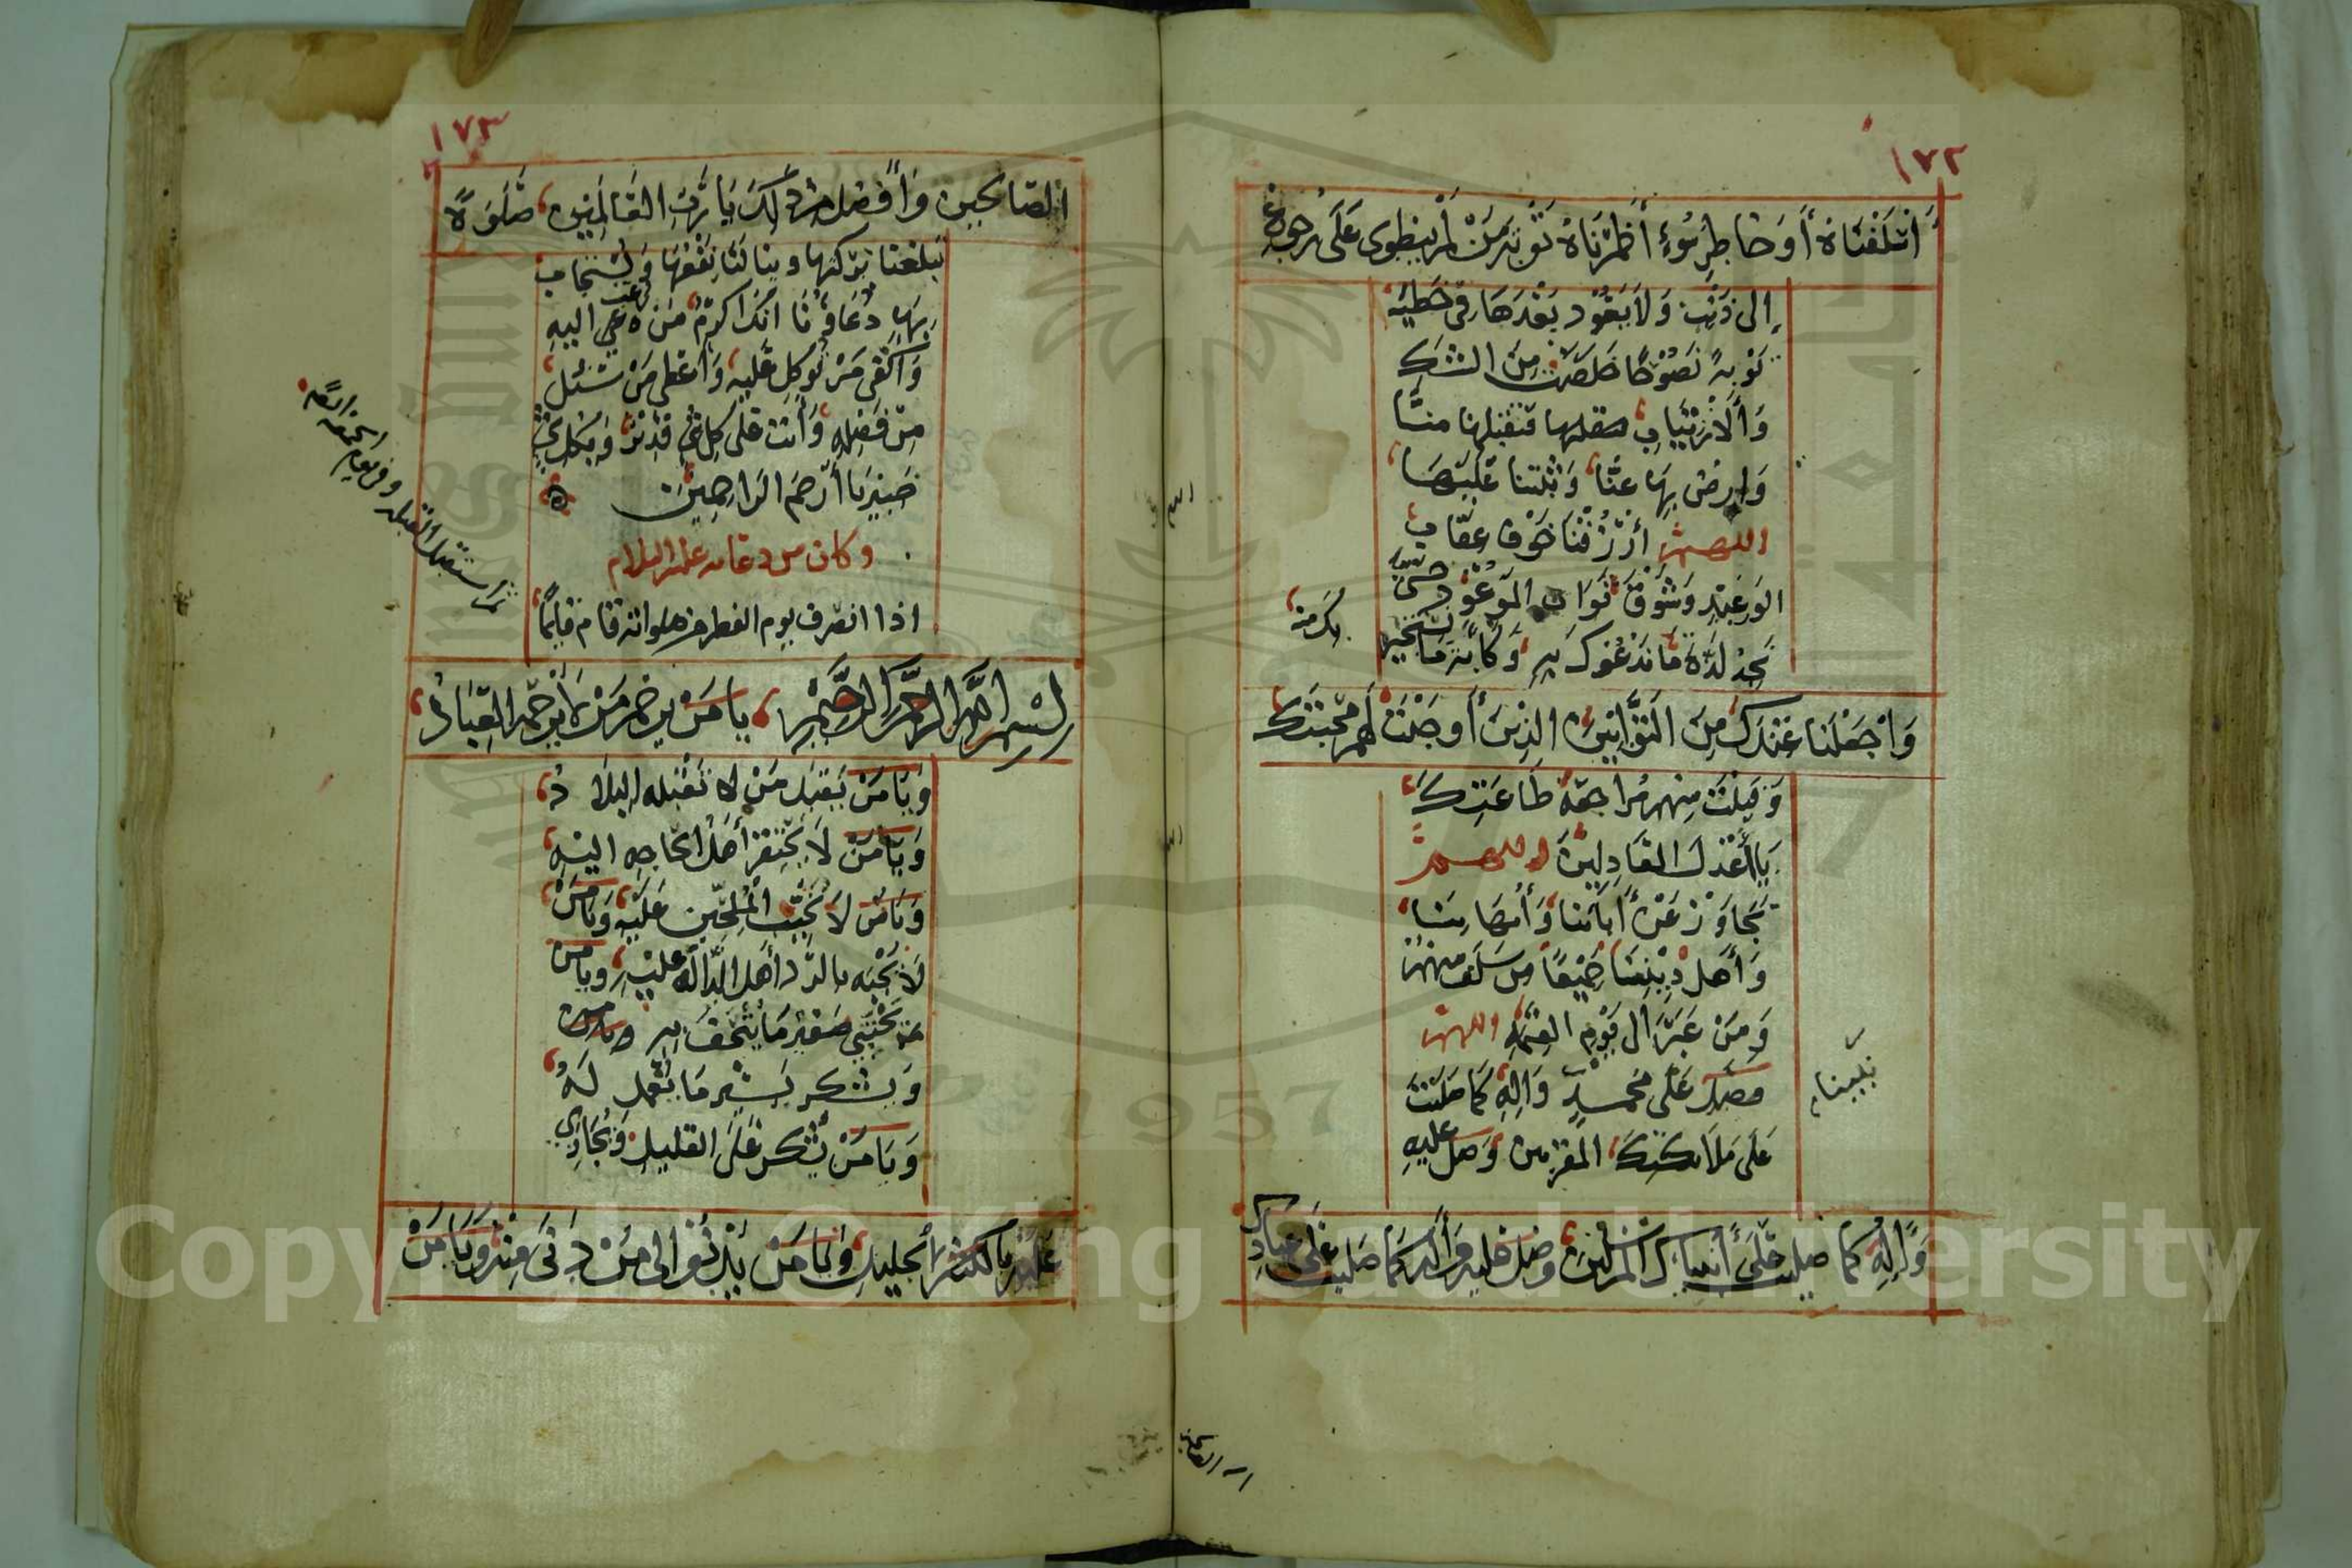 ١٧٢
أَسْلَفْنَاهُ أَوْ خَاطِرِ سُوءٍ أَضْمَرْنَاهُ تَوْبَةَ مَنْ لَمْ يَنْطَوِي عَلَى رُجُوعٍ
إلى ذَنْبٍ وَلَا يَعُوْدُ بَعْدَهَا في خَطِيْئَةٍ
تَوْبَةً نَصُوْحًا خَلَصَتْ مِنَ الشَّكِّ
وَالْاِرْتِيَابِ فتقبلها منّا
وَارضَ بِهَا عَنَّا وَثَبِّتْنا عَلَيْهَا
اللهم ارْزُقْنَا خَوْفَ عِقَابِ
الوَعِيْدِ وَشَوْقَ ثَوَابِ المَوْعُوْدِ حتى
نَجِدَ لَذَّةَ مَا نَدْعُوْكَ بِهِ وَكَأْبَةَ مَا نستجير
بك منه
وَاجْعَلْنَا عِنْدَكَ مِنَ التَّوَّابِيْنَ الذِيْنَ أَوجَبْتَ لَهُمْ مَحَبَّتَكَ
وَقَبِلْتَ مِنْهُم مُرَاجَعَةَ طَاعَتِكَ
يَا أَعْدَلَ العَادِلِيْنَ اللهم
تَجَاوَزْ عَنْ أَبَائِنا وَأُمهَاتِنَا
وَأَهْلِ دِيْنِنَا جَمِيْعًا مَن سَلَفَ مِنْهُمْ
وَمَنْ غَبَرَ الى يَوْمِ القِيمَةِ اللهم
صَلِّ عَلَى مُحَمَّدٍ وَالِهِ كَمَا صَلَّيْتَ
نبينا
عَلَى مَلَائكتِكَ المقَرَّبين وَصَلِّ عليهِ
وَالِهِ كما صليت عَلَى أنبيائك المرسلين وَصَلِّ عليه وَآله كَمَا صَلَّيت عَلَى عِبَادِكَ
الصالحين
١٧٣
الصَّالِحِيْنَ وَأَفْضَل من ذلِكَ يَا رَبَّ العَالَمِيْنَ صَلَوةً
تَبْلُغُنَا بَرَكَتُهَا وَيَنَالُنَا نَفْعُهَا وَيُسْتَجَابُ
بِهَا دُعَاؤُنَا انَّكَ اكْرَمُ مَن رُغِبَ اليهِ
وَاكْفَى مَنْ تُوُكِّلَ عَلَيْهِ وَاعْطَى مَنْ سُئِلَ
مِنْ فَضْلِهِ وَأَنْتَ عَلى كلِّ شيءٍ قَدِيْرٌ وَبِكُلِّ شَيْءٍ
خَبِيْرٌ يَا أَرْحَمَ الرَاحِمِيْنَ ه
وكان من دعائه عليه السلام
اذا انصرف يوم الفطر من صلواته قام قَائمًا
ثم استقبل القبله وفي يوم الجمعه ايضًا
بِسْمِ اللَّهِ الرَّحْمَنِ الرَّحِيْمِ يا مَنْ يرحَمُ مَنْ لَا يَرْحَمُهُ العِبَادُ
وَيَا مَنْ يَقْبَلُ مَنْ لَا تَقْبَلُه البِلَادُ
وَيَا مَنْ لَا يَحْتَقِرُ أَهْلَ الحَاجَةِ اليْهِ
وَيَا مَنْ لَا يُخَيِّبُ الْمُلِحِّيْنَ عَلَيْهِ وَيَا مَنْ
لَا يَجْبَهُ بالرَّدِّ أَهْلَ الدَّالَّةِ عَلَيْهِ ويا مَنْ
يَجْتَبِي صَغِيْرَ مَا يُتْحَفُ بِهِ
وَيشكر يَسِيْرَ مَا يُعْمَلُ لَهُ
وَيَا مَنْ يُشْكرُ عَلَى القليلِ وَيُجَازِي
بالكثيرِ الْجَلِيلَ وَيَا مَنْ يَدْنُوْ الى مَنْ دَنَى مِنْهُ وَيَا مَنْ
Copyright © King Saud University
1957